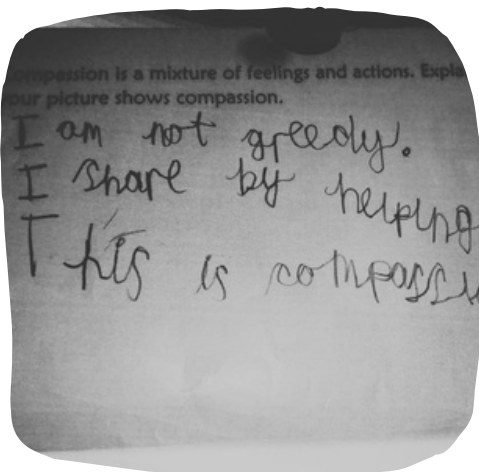 ompassion is a mixture of feelings and actions. Expla
our picture shows compassion.
I am not greedy.
I share by helping
This is compassi